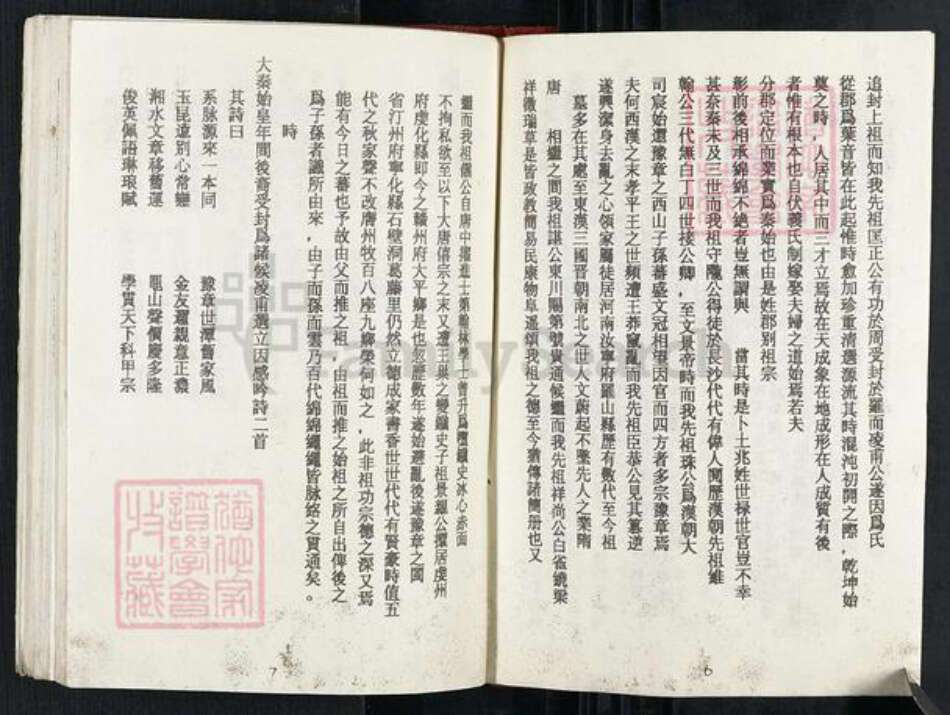 追封上祖而知我先祖匡正公有功於周受封於羅而凌甫公遂因爲氏
從郡爲葉音皆在此起惟時愈加珍重清選源流其時混沌初開之際，乾坤始
奠之時，人居其中而三才立焉故在天成象在地成形在人成質有後
者惟有根本也自伏羲氏制嫁娶夫婦之道始焉若夫
分郡定位而業實爲秦始也由是姓郡別祖宗
彰前後相承綿綿不絕者豈無謂與　當其時是卜土兆姓世祿世官豈不幸
甚奈秦未及三世而我祖守隴公得徒於長沙代代有偉人閱歷漢朝先祖雖
翰公三代無白丁四世接公卿，至文景帝時而我先祖珠公爲漢朝大
司宸始還豫章之西山子孫蕃盛文冠相望因官而四方者多宗豫章焉
夫何西漢之末孝平王之世頻遭王莽竄亂而我先祖臣恭公見其篡逆
遂興潔身去亂之心領家屬徒居河南汝寧府羅山縣歷有數代至今祖
墓多在其處至東漢三國晉朝南北之世人文蔚起不墜先人之業隋
唐　相繼之間我祖謀公東川賜第號貴通候繼而我先祖祥尚公白雀繞梁
祥徵瑞草是皆政教簡易民康物阜遙頌我祖之德至今猶傳諸簡册也又
繼而我祖儒公自唐中擢進士第翰林學士曾升爲禮鐵史冰心赤面
不拘私欲至以下大唐僖宗之末又遭王巢之變鐵史子祖景綑公攜居虔州
府虔化縣即今之贛州府大平鄉是也忽歷數年遂始避亂後遂豫章之閩
省汀州府寧化縣石壁洞葛藤里仍然立德成家書香世世代代有賢豪時值五
代之秋家聲不改膺州牧百八座九鄉榮何如之，此非祖功宗德之深又焉
能有今日之蕃也予故由父而推之祖　由祖而推之始祖之所自出俾後之
爲子孫者識所由來，由子而孫而雲乃百代綿綿繩繩皆脉絡之貫通矣。
時
大秦始皇年間後裔受封爲諸候凌甫選立因感吟詩二首
其詩曰
系脉源來一本同　豫章世澤舊家風
玉昆遠別心常戀　金友邇親意正濃
湘水文章移舊運　龜山聲價慶多隆
俊英佩語琳琅賦　學貫天下科甲宗
7
6